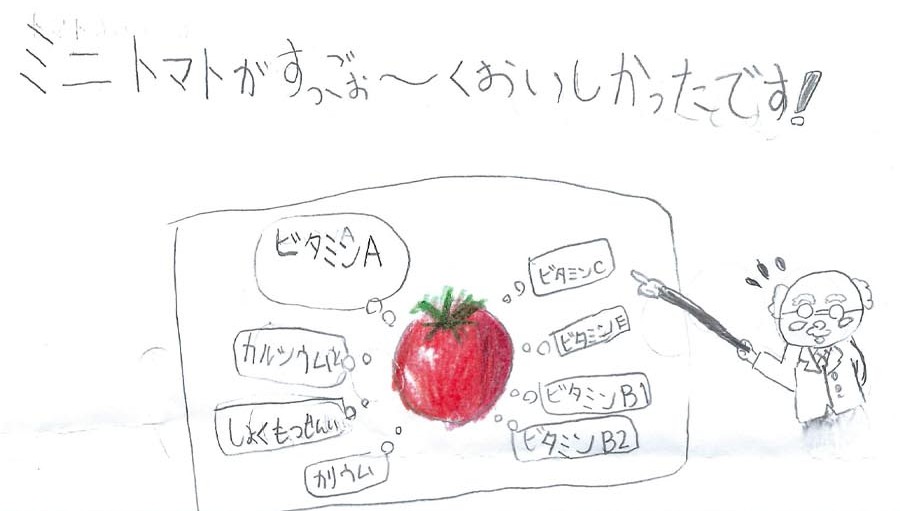 ミニトマトがすっごお〜くおいしかったです!
ビタミンA
ビタミンC
カルシウム
ビタミンE
しょくもつせんい
ビタミンB1
カリウム
ビタミンB2